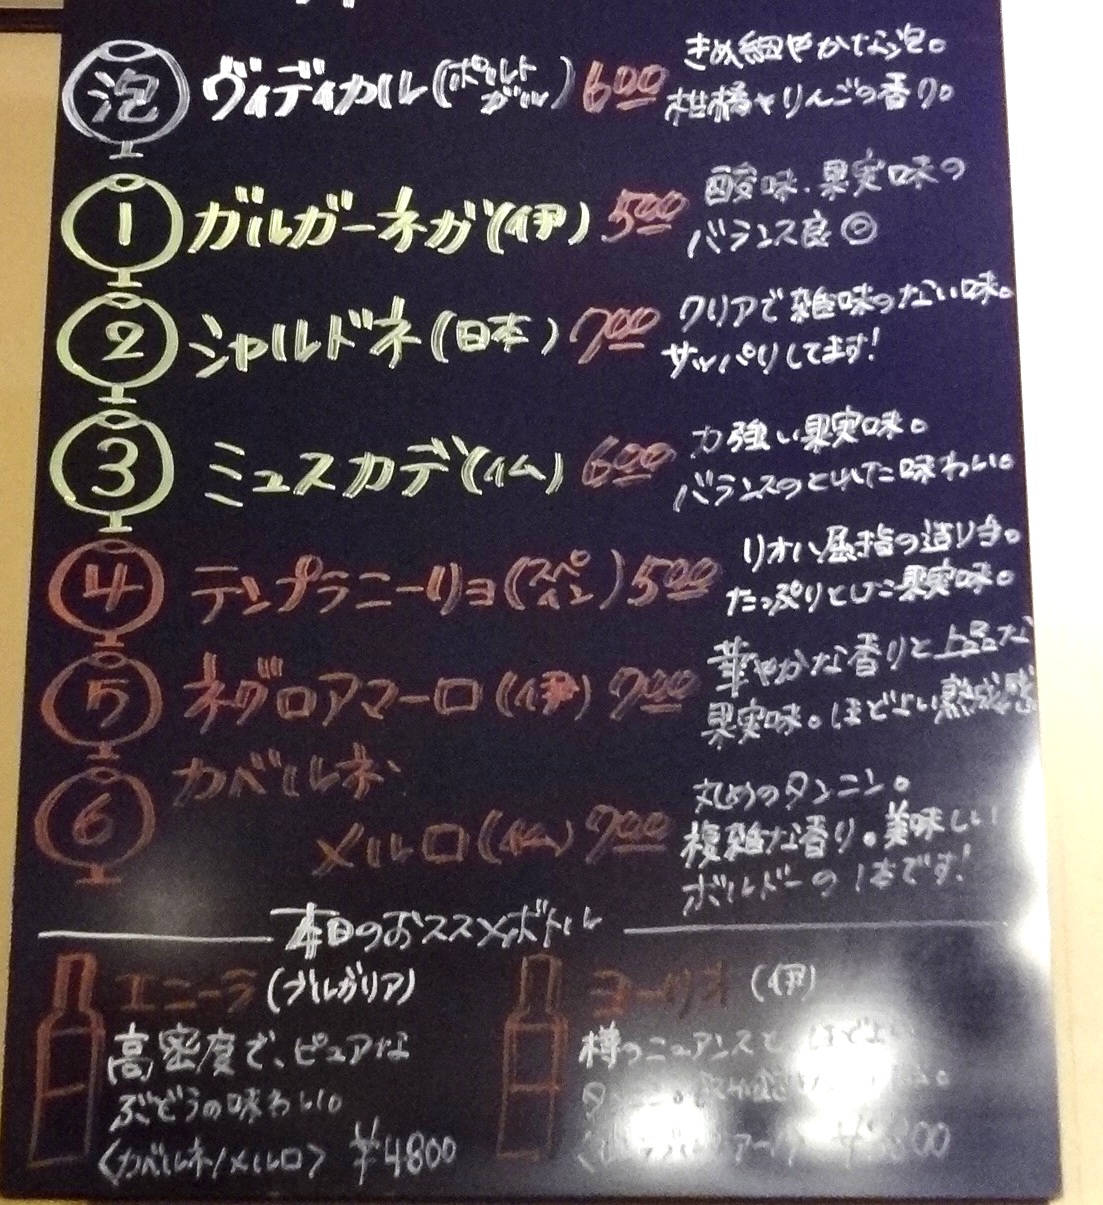 泡 ヴィディガル(ポルトガル) 600 きめ細やかな泡。
柑橘やりんごの香り。
1 ガルガーネガ(伊) 500 酸味、果実味の
バランス良◎
2 シャルドネ(日本) 700 クリアで雑味のない味。
サッパリしてます!
3 ミュスカデ(仏) 600 力強い果実味。
バランスのとれた味わい。
4 テンプラニーリョ(スペイン) 500 リオハ屈指の造り手。
たっぷりとした果実味。
5 ネグロアマーロ(伊) 700 華やかな香りと上品な
果実味。ほどよい熟成感
6 カベルネ・
メルロ(仏) 700 丸めのタンニン。
複雑な香り。美味しい
ボルドーの1本です!
本日のおススメボトル
エニーラ(ブルガリア)
高密度で、ピュアな
ぶどうの味わい。
〈カベルネ/メルロ〉 ¥4800
ヨーリオ (伊)
樽のニュアンスと ほどよ